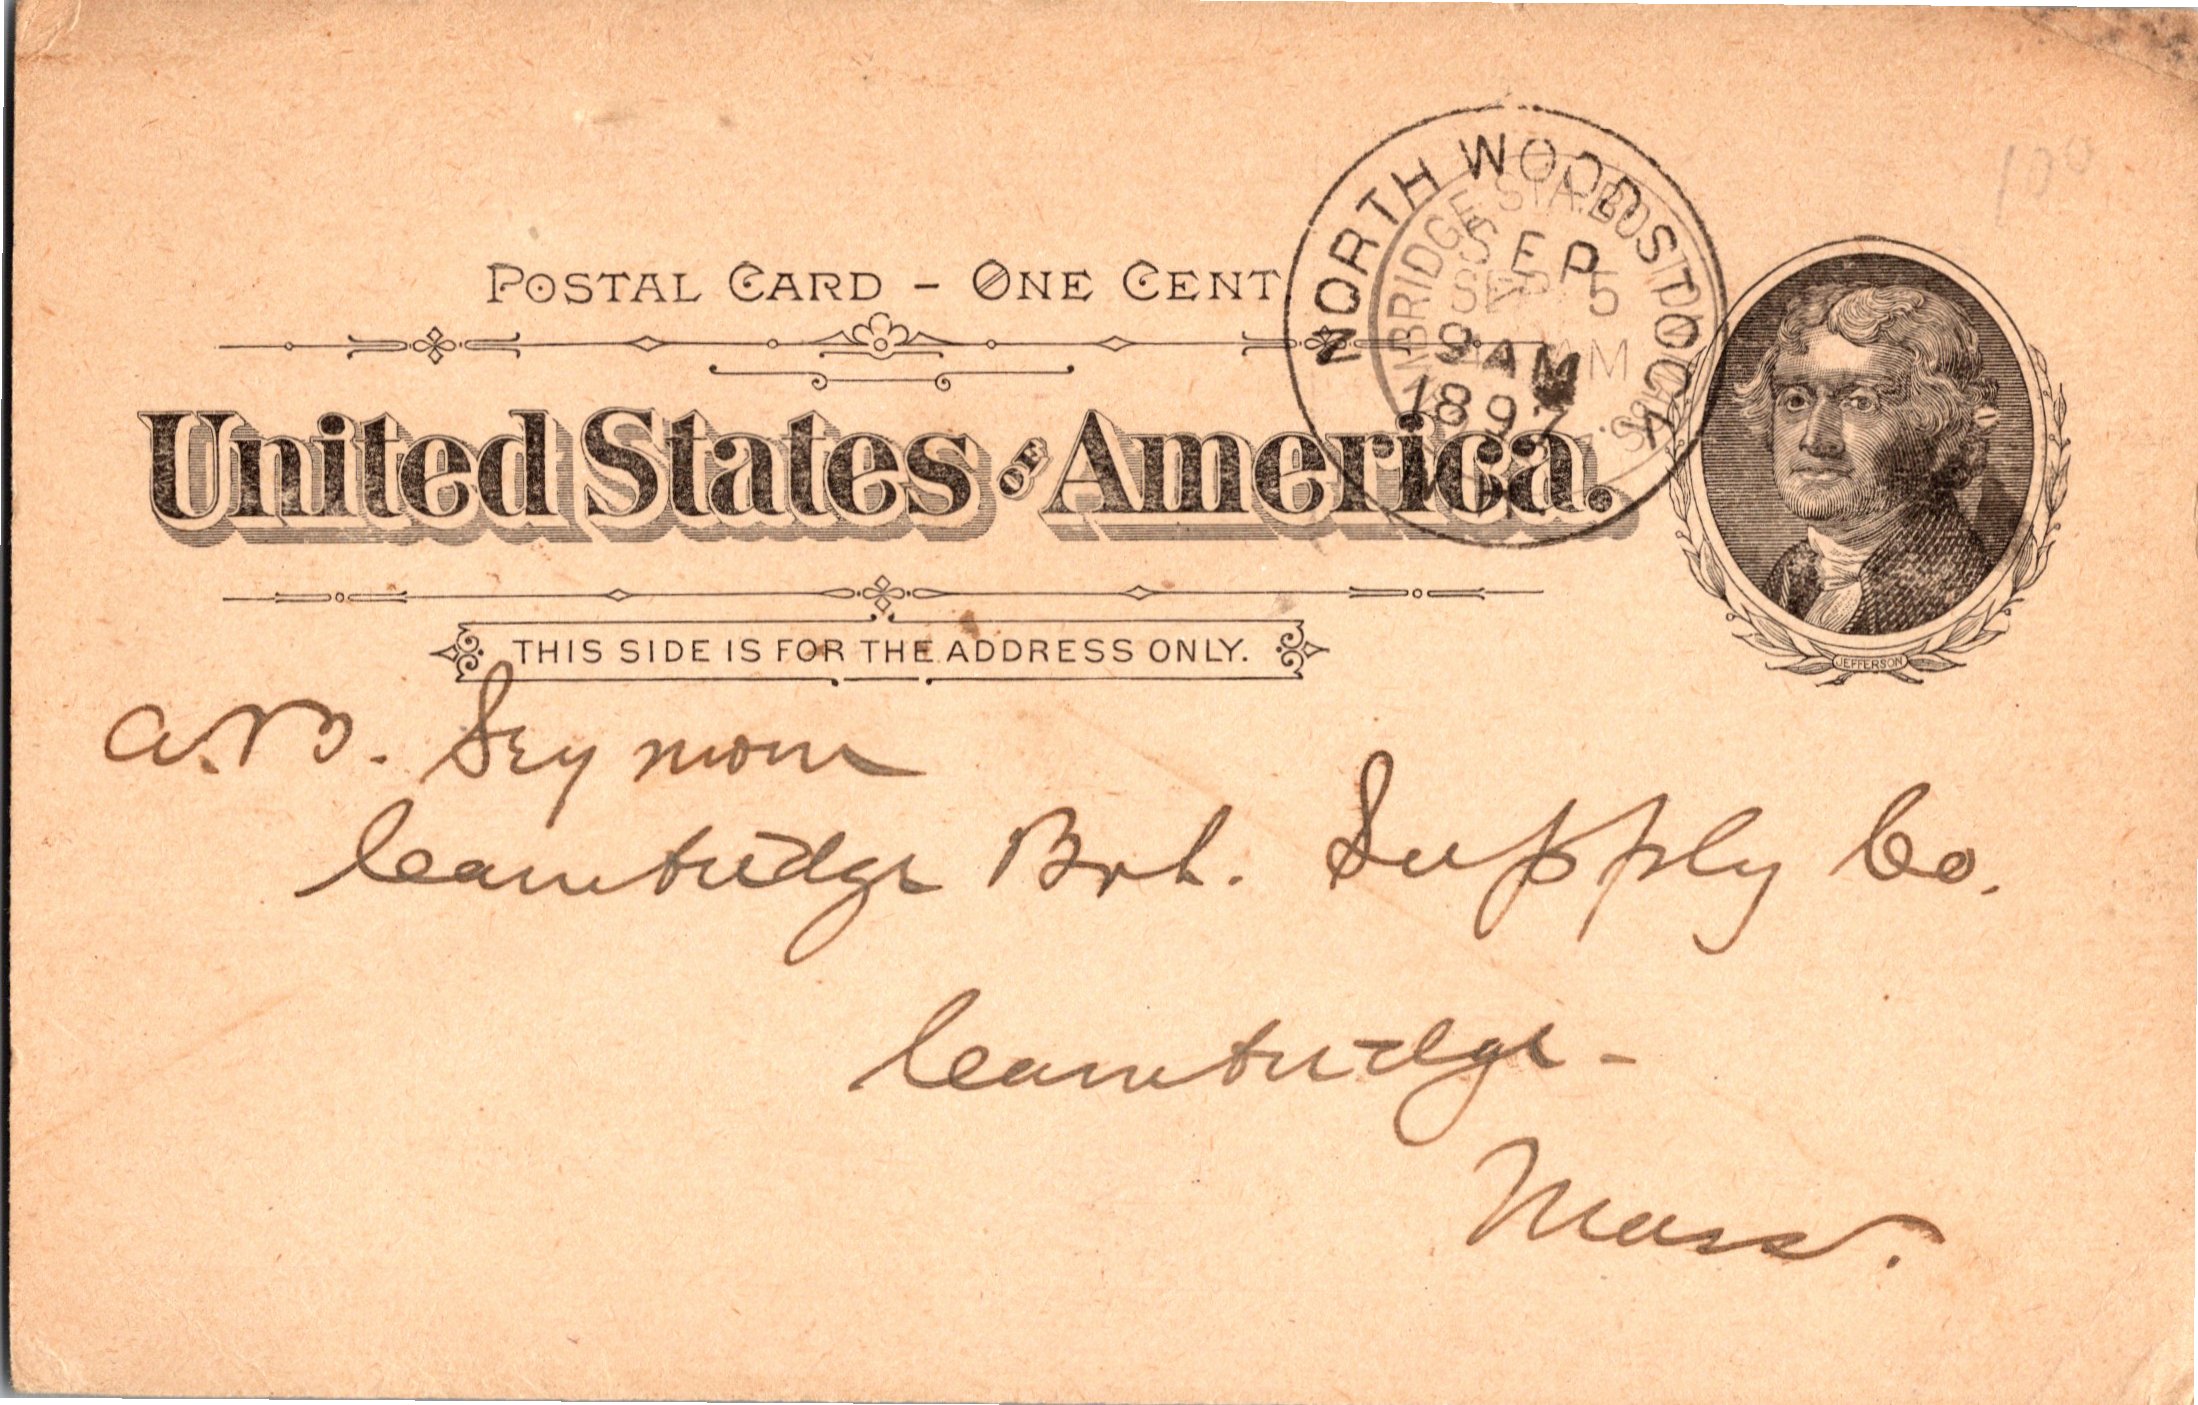 POSTAL CARD – ONE CENT
United States OF America.
THIS SIDE IS FOR THE ADDRESS ONLY.
JEFFERSON
NORTH WOODSTOCK
SEP
9 AM
1897
BRIDGE STA. BOSTON
SEP 5
AM
MASS.
100
A. B. Seymour
Cambridge Bot. Supply Co.
Cambridge –
Mass.